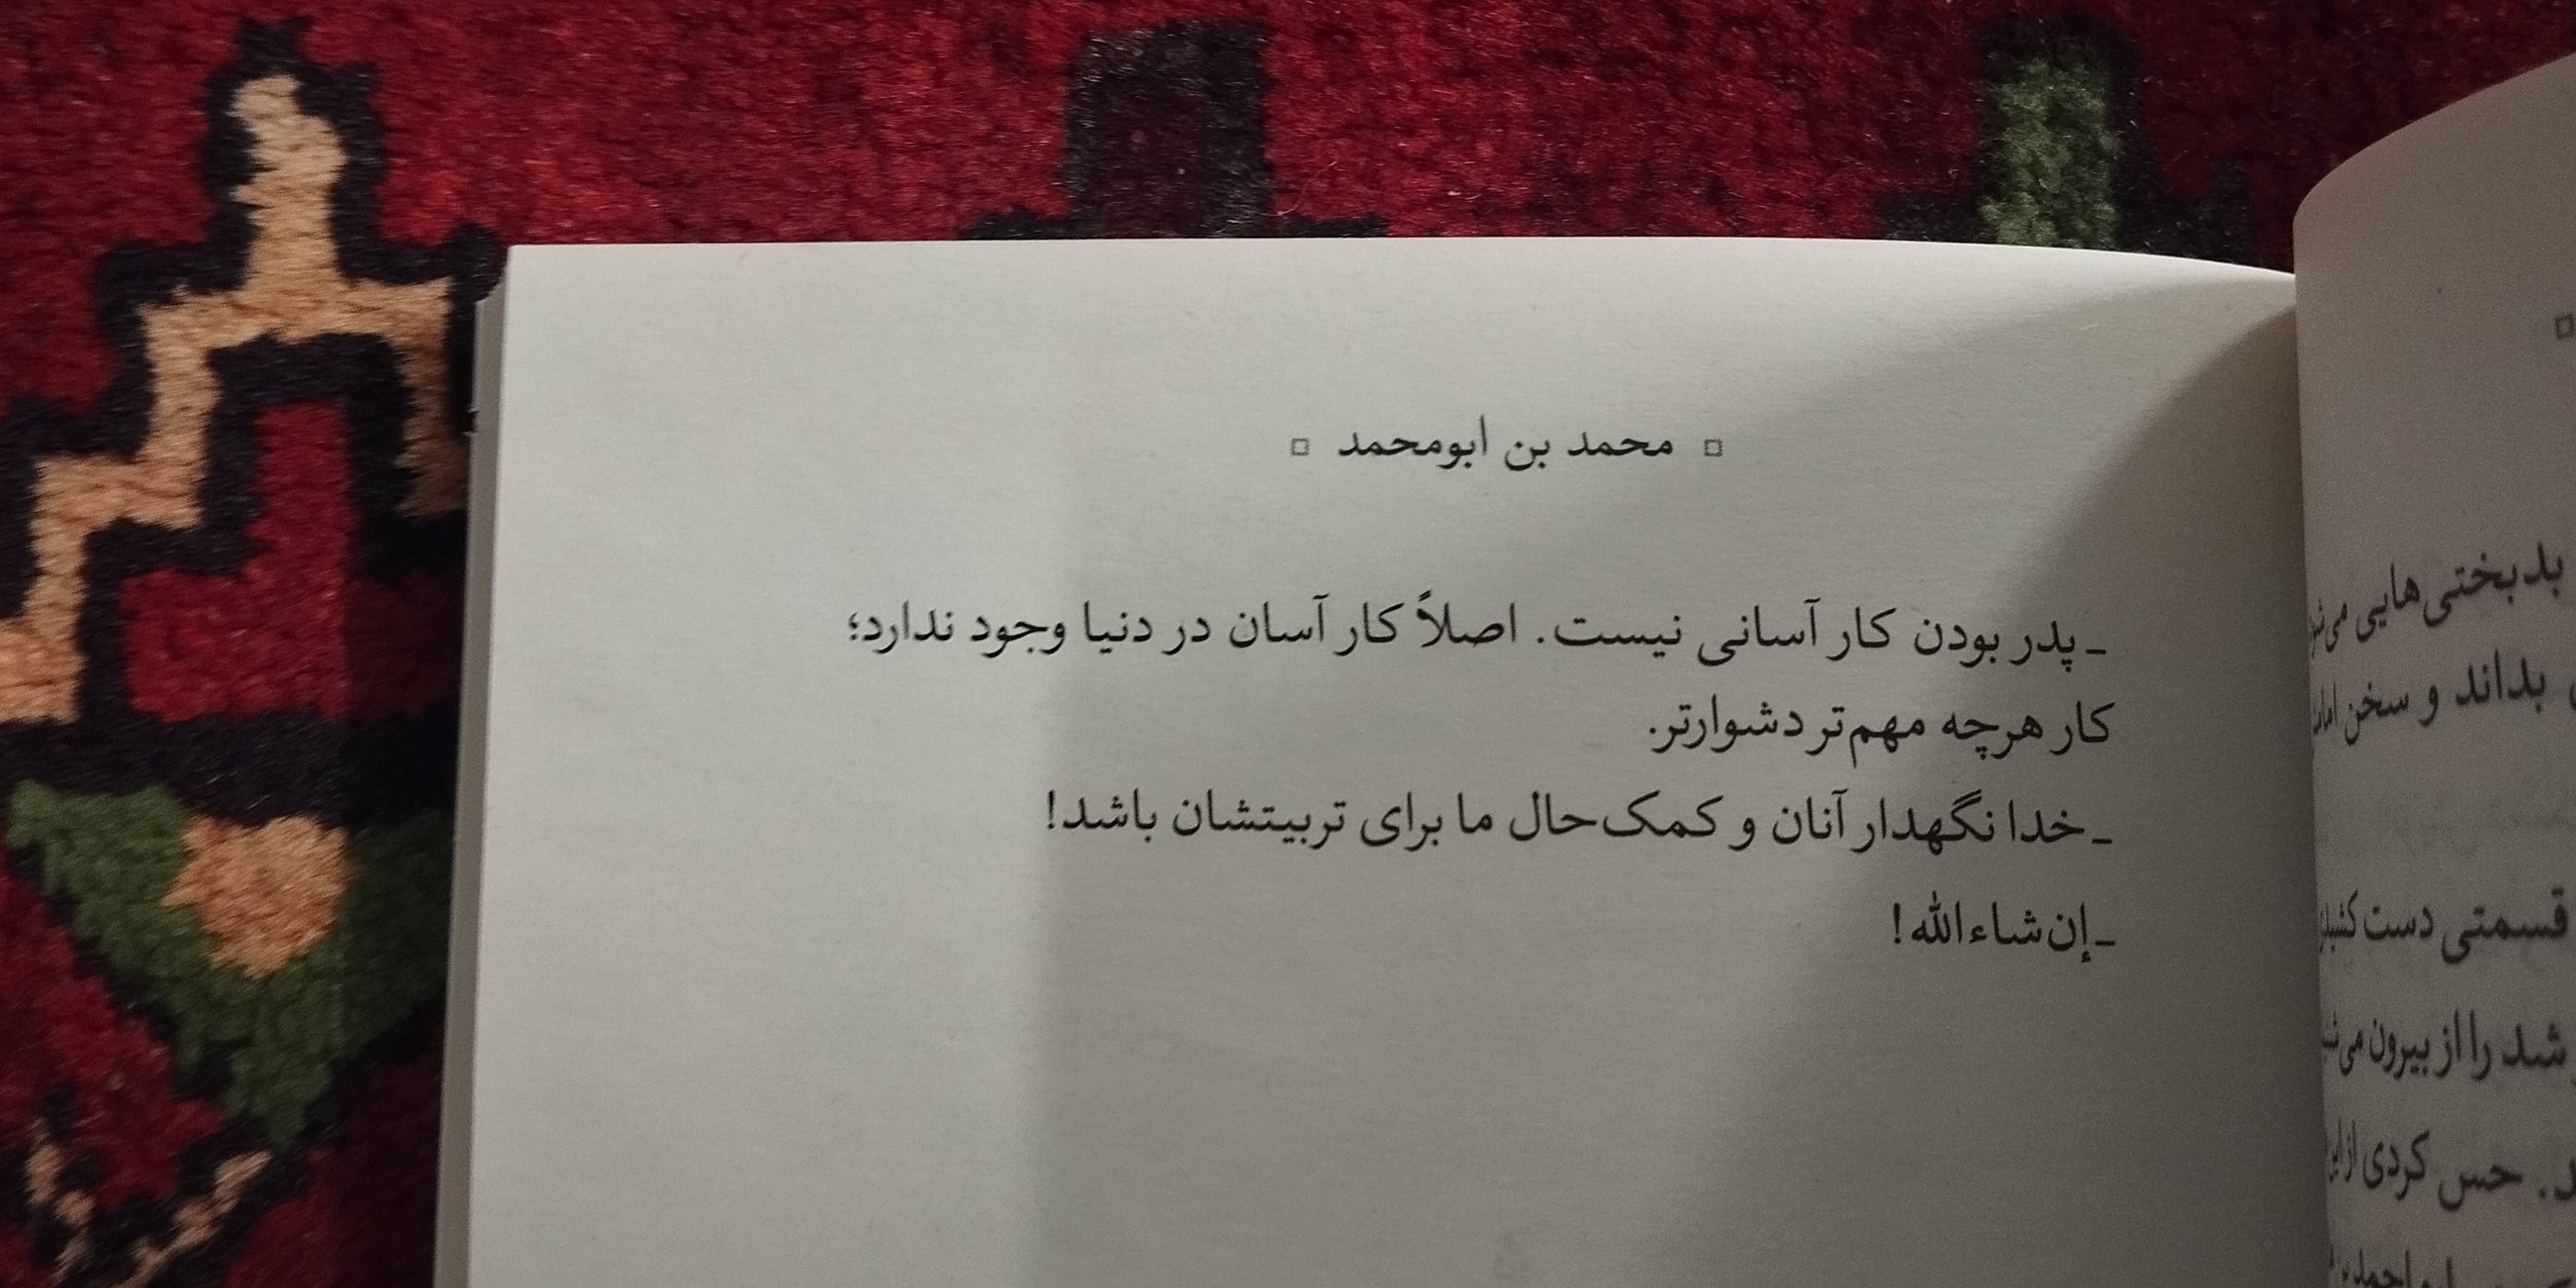 ▫ محمد بن ابومحمد ▫
ـ پدر بودن کار آسانی نیست. اصلاً کار آسان در دنیا وجود ندارد؛
کار هرچه مهم‌تر دشوارتر.
ـ خدا نگهدار آنان و کمک‌حال ما برای تربیتشان باشد!
ـ إن‌شاءالله!
بدبختی‌هایی
بداند و سخن
قسمتی دست
شد را از بیرون
حس کردی